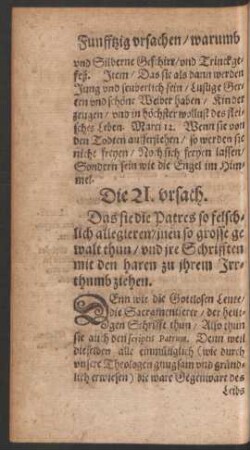 Funfftzig vrsachen / warumb
vnd Silberne Geschirr / vnd Trinckge-
feß. Item / Das sie als dann werden
Jung vnd seuberlich sein / Lustige Ger-
ten vnd schöne Weiber haben / Kinder
zeugen / vnd in höchster wollust des flei-
sches leben. Marci 12. Wenn sie von
den Todten aufferstehen / so werden sie
nicht freyen / Noch sich freyen lassen /
Sondern sein wie die Engel im Him-
mel.
Die XI. vrsach.
Das sie die Patres so felsch-
lich allegieren / jnen so grosse ge
walt thun / vnd jre Schrifften
mit den haren zu jhrem Irr-
thumb ziehen.
DEnn wie die Gottlosen Leute /
die Sacramentierer / der heili-
gen Schrifft thun / Also thun
sie auch den scriptis Patrum. Denn weil
dieselben alle einmütiglich (wie durch
vnsere Theologen gnugsam vnd gründ-
lich erwiesen) die ware Gegenwart des
Leibs